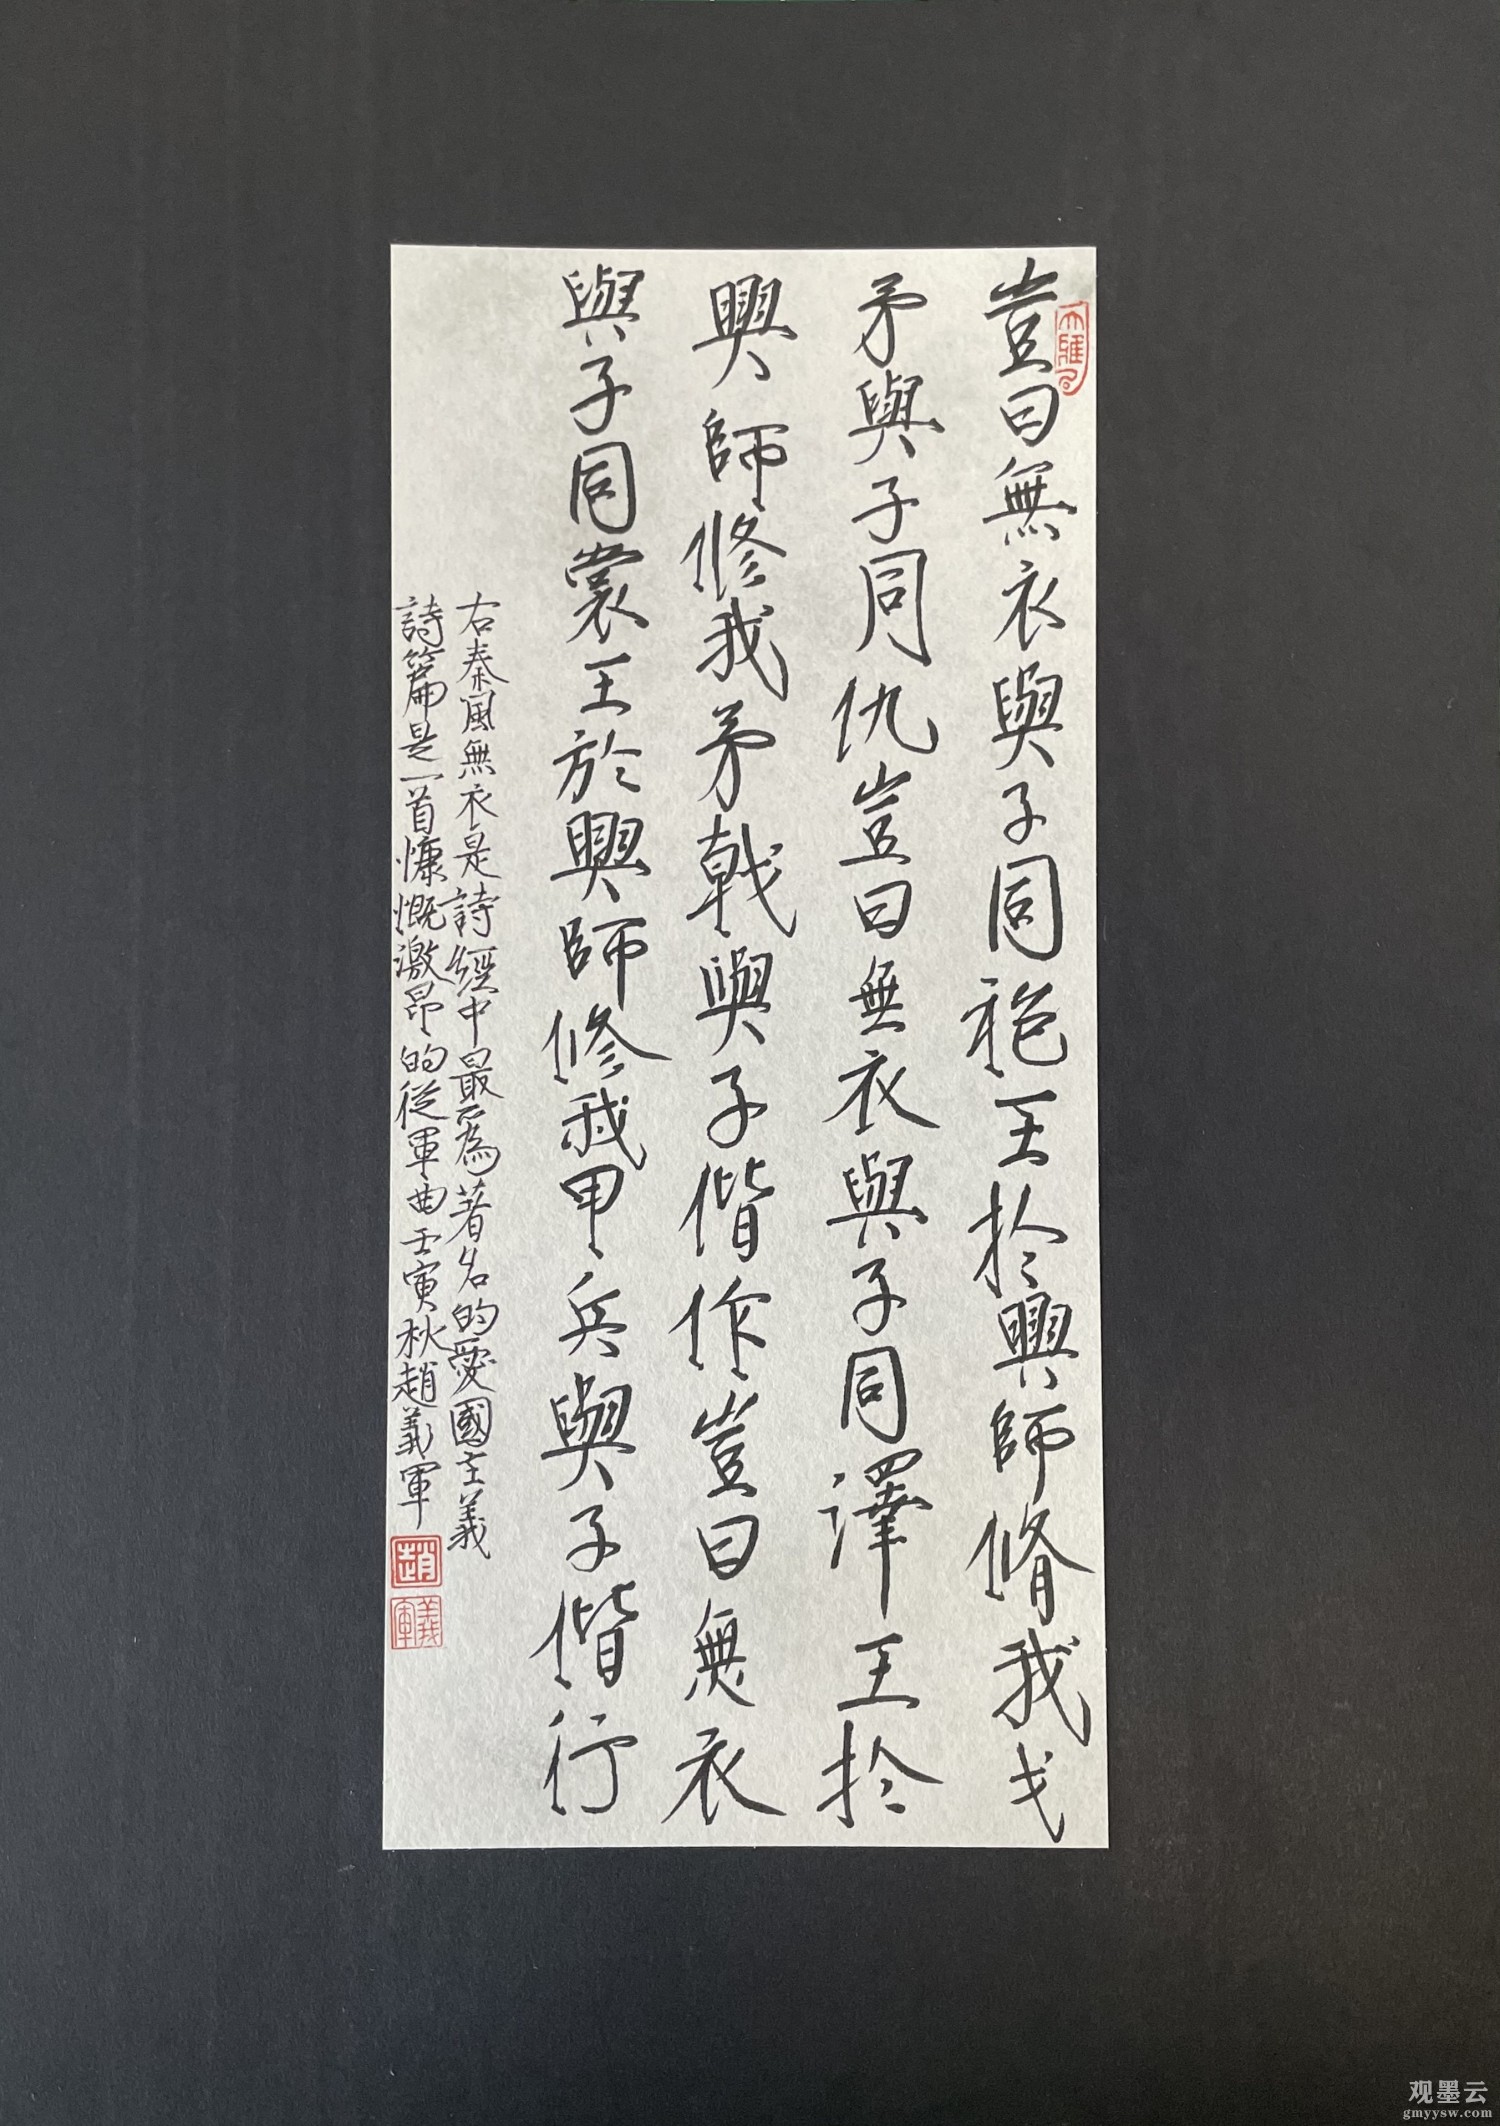 豈曰無衣與子同袍王於興師脩我戈
矛與子同仇豈曰無衣與子同澤王於
興師修我矛戟與子偕作豈曰無衣
與子同裳王於興師修我甲兵與子偕行
右秦風無衣是詩經中最為著名的愛國主義
詩篇是一首慷慨激昂的從軍曲壬寅秋趙義軍
趙
義軍
观墨云
gmyysw.com